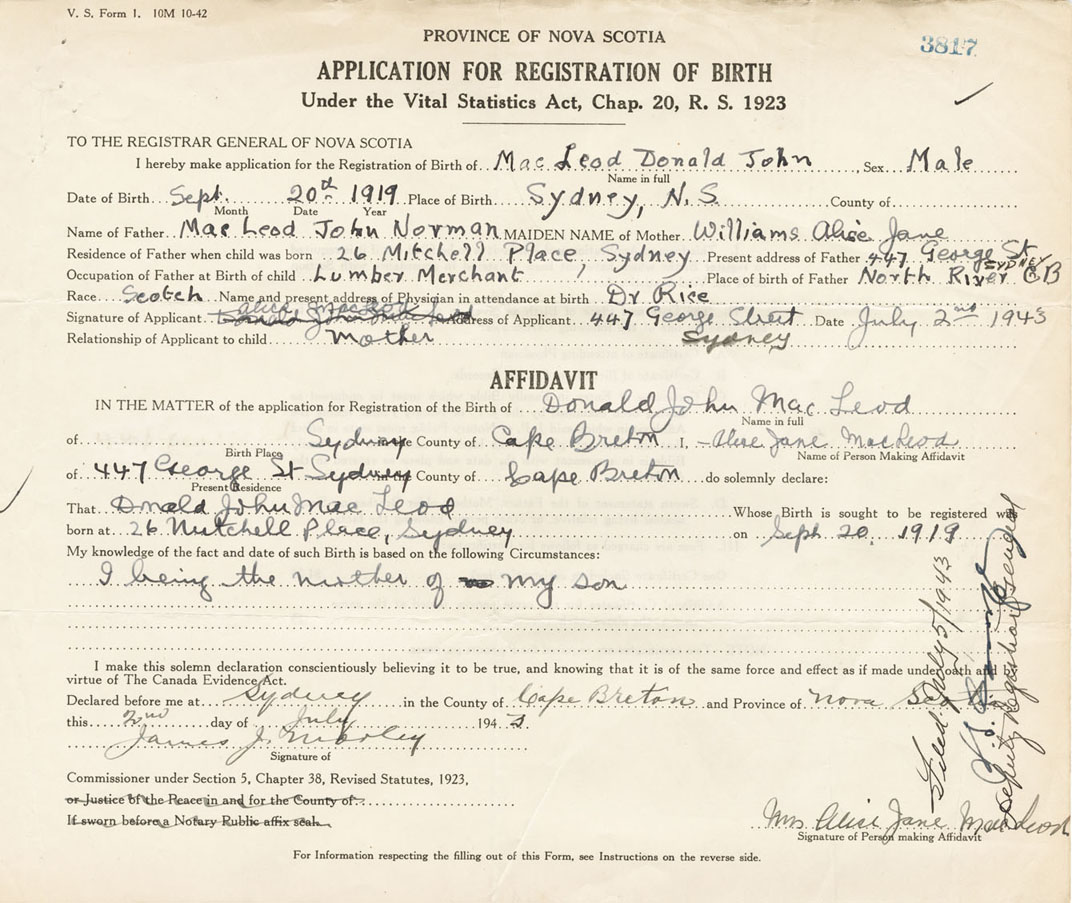 V. S. Form 1. 10M 10-42
3817
PROVINCE OF NOVA SCOTIA
APPLICATION FOR REGISTRATION OF BIRTH
Under the Vital Statistics Act, Chap. 20, R. S. 1923
TO THE REGISTRAR GENERAL OF NOVA SCOTIA
I hereby make application for the Registration of Birth of Mac Leod Donald John Sex Male
Name in full
Date of Birth Sept. 20th 1919 Place of Birth Sydney, N.S. County of
Month Date Year
Name of Father Mac Leod John Norman MAIDEN NAME of Mother Williams Alice Jane
Residence of Father when child was born 26 Mitchell Place, Sydney Present address of Father 447 George St
SYDNEY
Occupation of Father at Birth of child Lumber Merchant Place of birth of Father North River CB
Race Scotch Name and present address of Physician in attendance at birth Dr Rice
Alice MacLeod
Signature of Applicant Donald John MacLeod Address of Applicant 447 George Street Date July 2nd 1943
Relationship of Applicant to child Mother Sydney
AFFIDAVIT
IN THE MATTER of the application for Registration of the Birth of Donald John Mac Leod
Name in full
of Sydney County of Cape Breton I, Alice Jane MacLeod
Birth Place Name of Person Making Affidavit
of 447 George St Sydney County of Cape Breton do solemnly declare:
Present Residence
That Donald John Mac Leod Whose Birth is sought to be registered was
born at 26 Mitchell Place, Sydney on Sept. 20, 1919
My knowledge of the fact and date of such Birth is based on the following Circumstances:
I being the mother of my son
I make this solemn declaration conscientiously believing it to be true, and knowing that it is of the same force and effect as if made under oath and by
virtue of The Canada Evidence Act.
Declared before me at Sydney in the County of Cape Breton and Province of Nova Scotia
this 2nd day of July 1943
James J. Morley
Signature of
Commissioner under Section 5, Chapter 38, Revised Statutes, 1923,
or Justice of the Peace in and for the County of
If sworn before a Notary Public affix seal.
Mrs Alice Jane MacLeod
Signature of Person making Affidavit
For Information respecting the filling out of this Form, see Instructions on the reverse side.
Filed July 5/1943
Deputy Registrar General